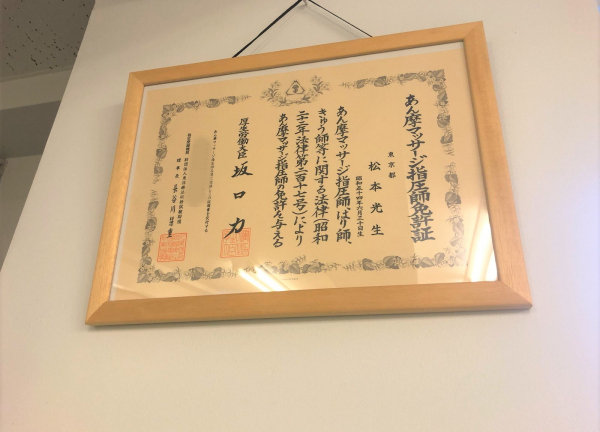 あん摩マッサージ指圧師免許証
東京都
松本光生
昭和五十四年六月三十日生
あん摩マッサージ指圧師、はり師、
きゅう師等に関する法律(昭和
二十二年法律第二百十七号)により
あん摩マッサージ指圧師の免許を与える
厚生労働大臣 坂口力